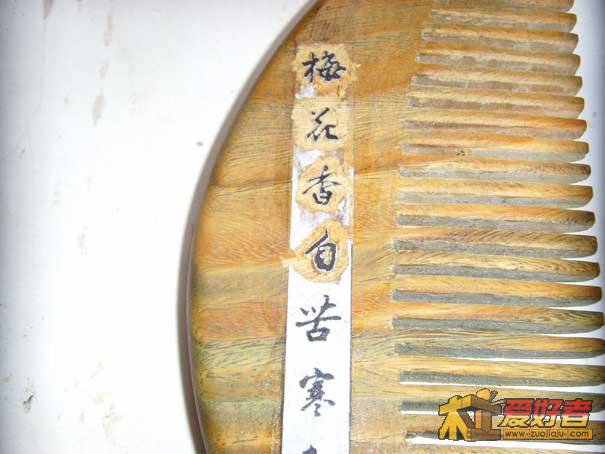 梅花香自苦寒
木工爱好者
www.zuojiaju.com